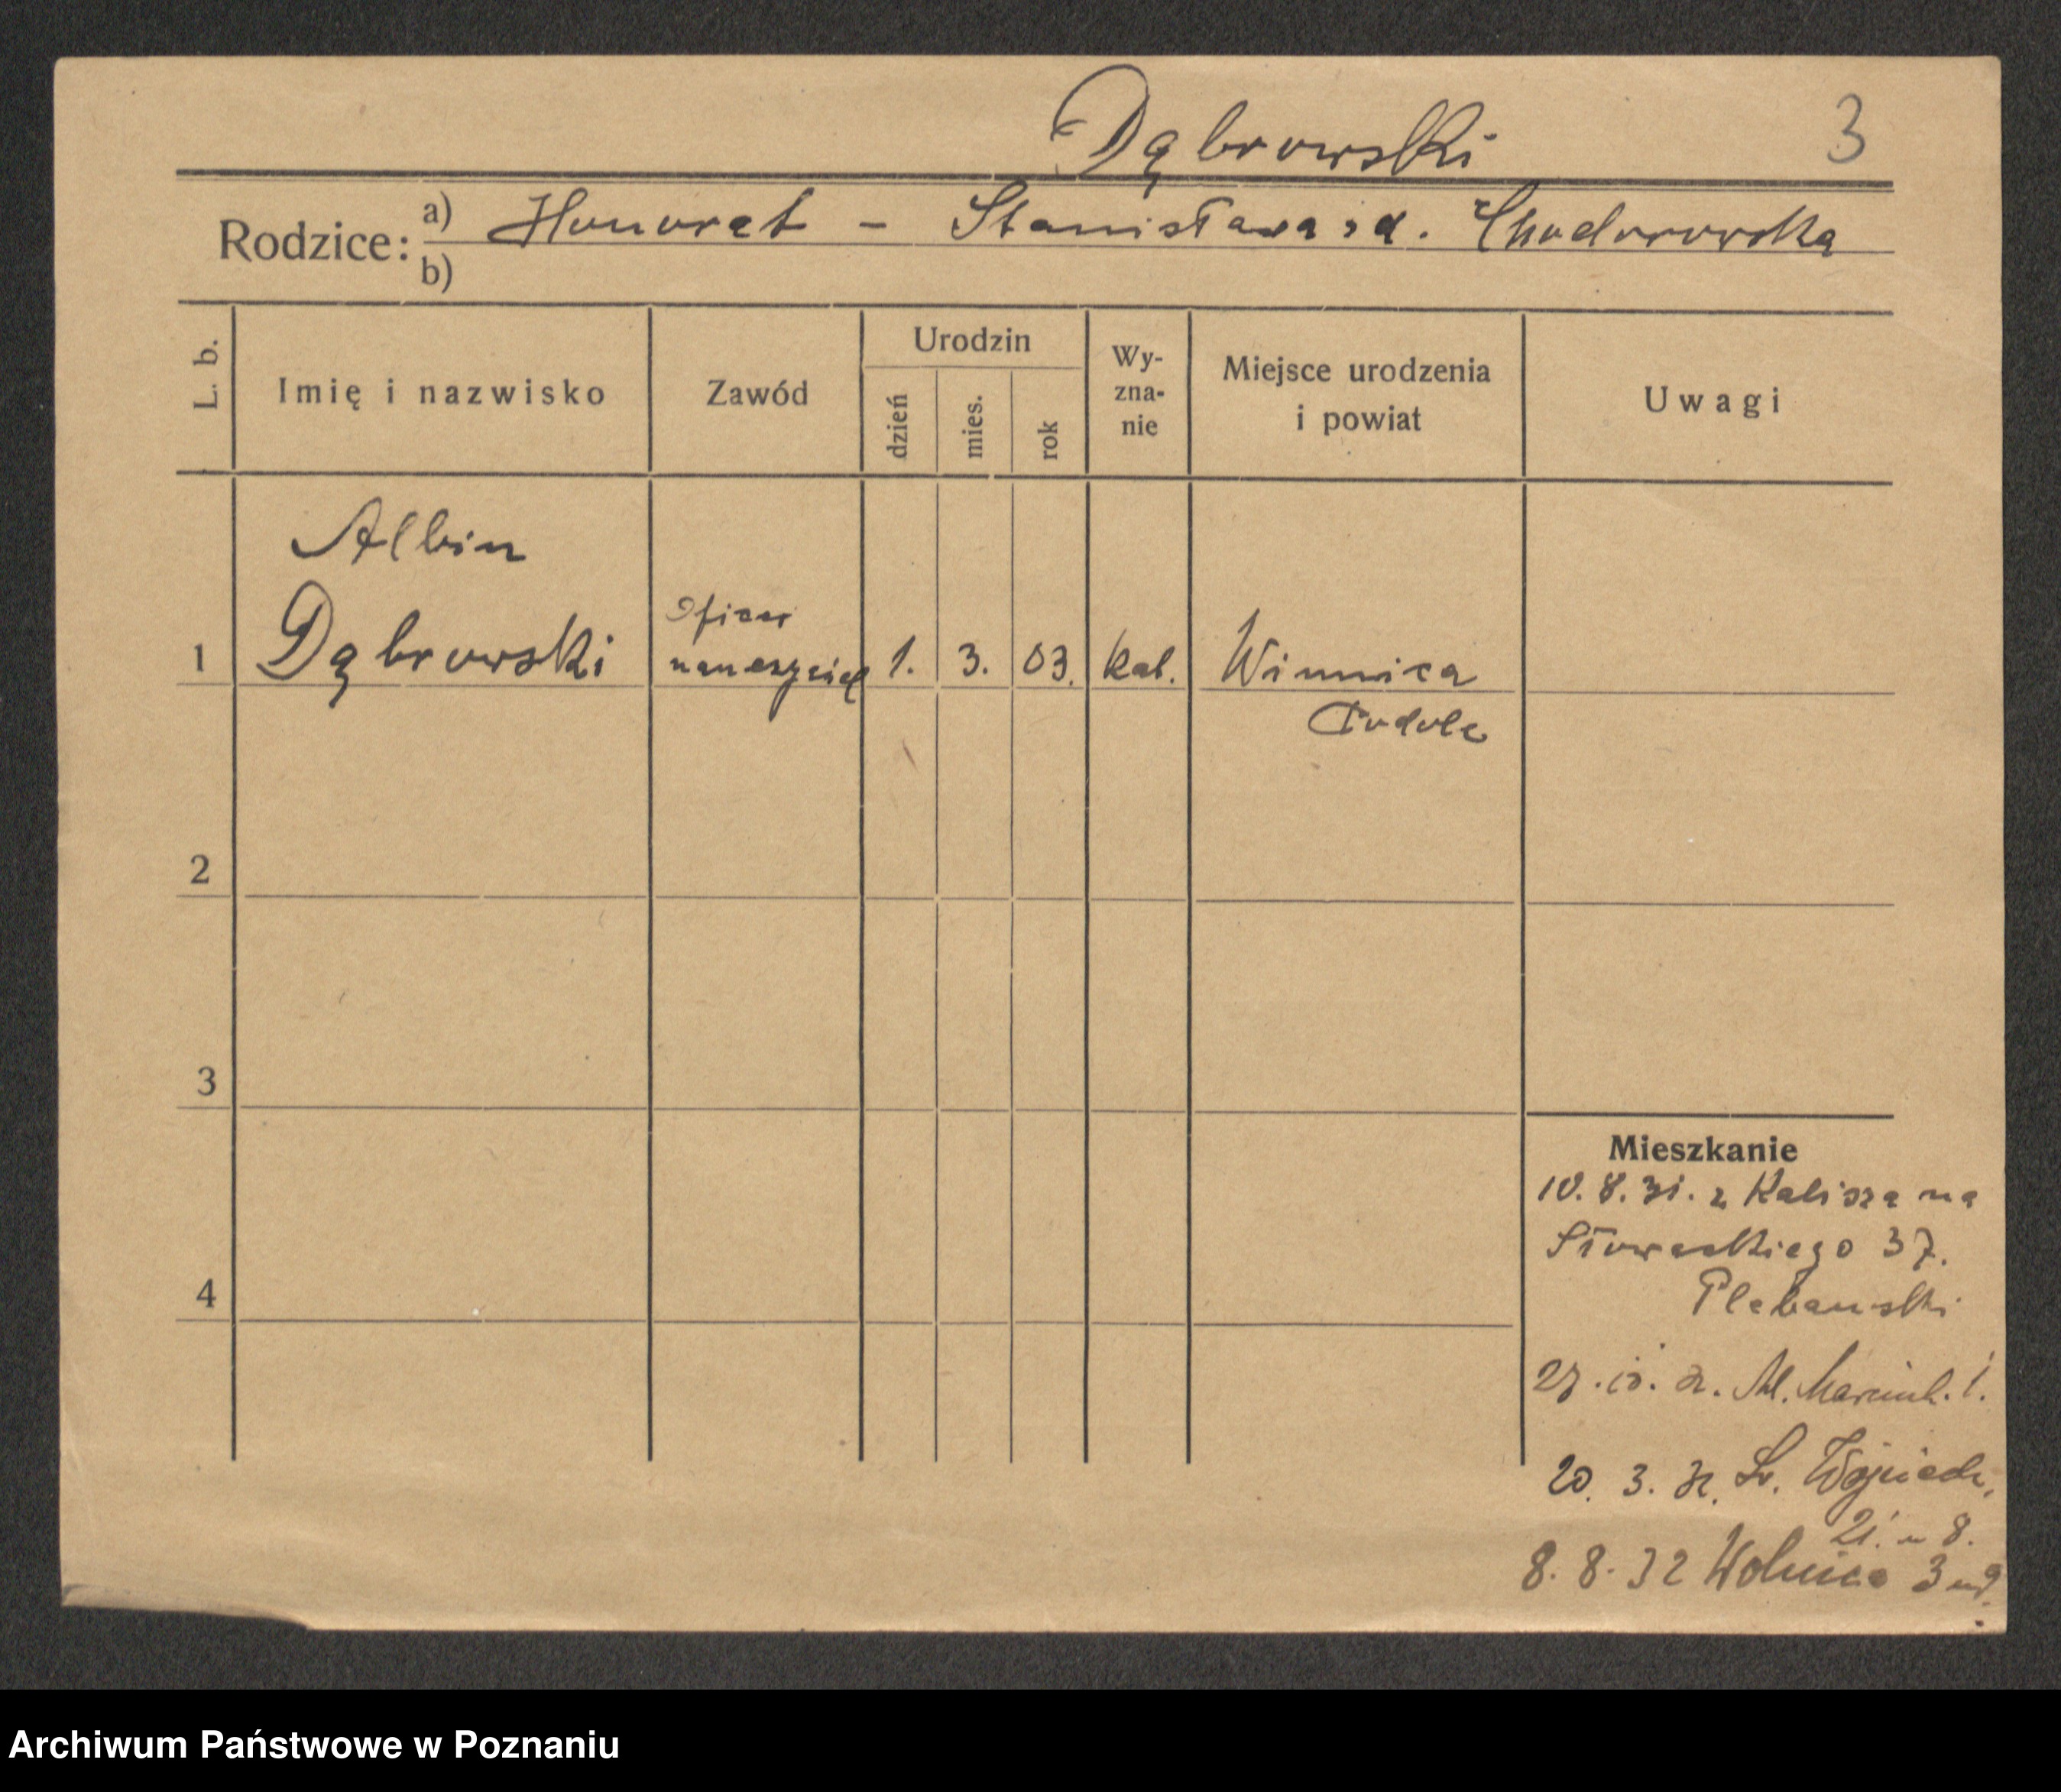 Dąbrowski 3
Rodzice: a) Honorat – Stanisława z d. Chodorowska
b)
L. b. Imię i nazwisko Zawód Urodzin dzień mies. rok Wy-zna-nie Miejsce urodzenia i powiat Uwagi
Albin
oficer
1 Dąbrowski nauczyciel 1. 3. 03. kat. Winnica
Podole
2
3
Mieszkanie
10. 8. 31. z Kalisza na
Słowackiego 37.
4 Plebański
27. 10. Al. Marcink. 1.
20. 3. 32. Św. Wojciech.
21. m 8.
8. 8. 32 Wolnica 3
Archiwum Państwowe w Poznaniu